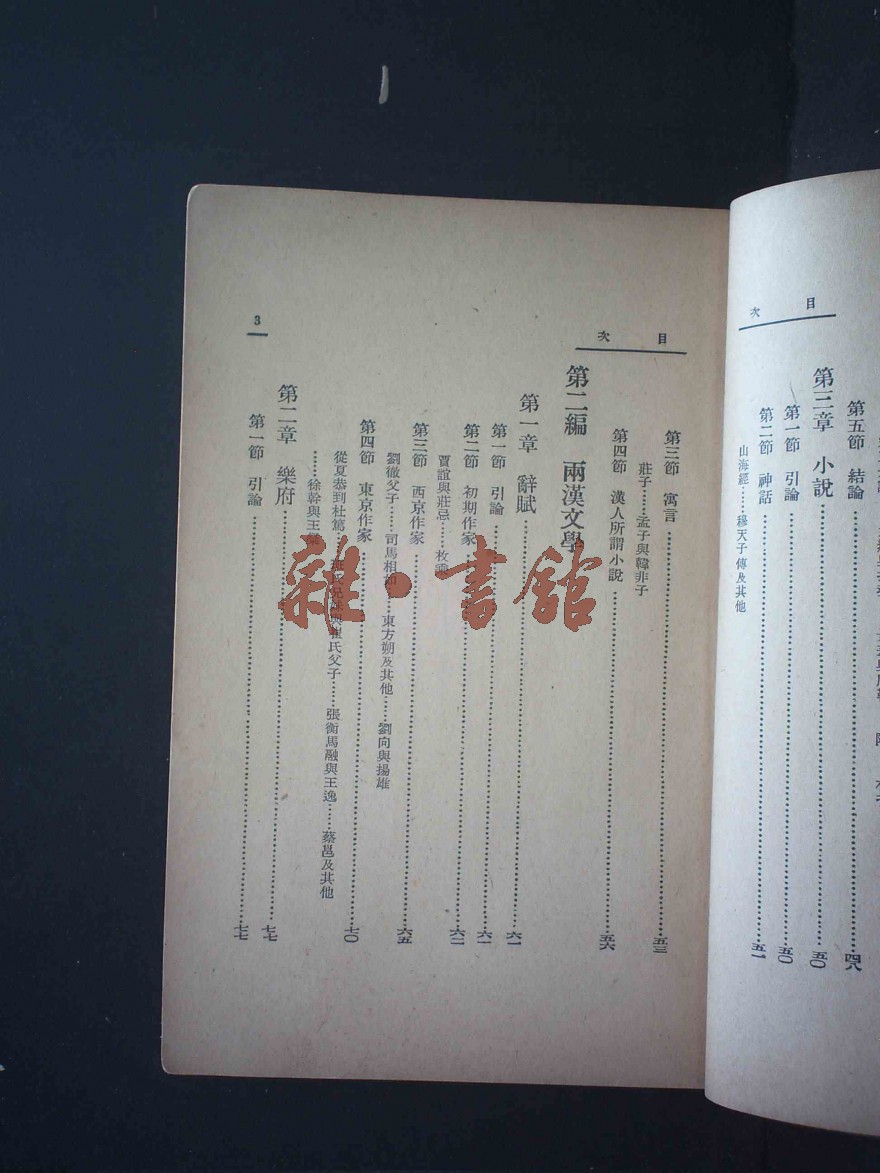 目　次
第五節　結論……四八
第三章　小說……五〇
第一節　引論……五〇
第二節　神話……五一
山海經……穆天子傳及其他
目　次
第三節　寓言……五三
莊子……孟子與韓非子
第四節　漢人所謂小說……五六
第二編　兩漢文學
第一章　辭賦……六一
第一節　引論……六一
第二節　初期作家……六二
賈誼與莊忌……枚乘
第三節　西京作家……六五
劉徹父子……司馬相如……東方朔及其他……劉向與揚雄
第四節　東京作家……七〇
從夏恭到杜篤……班氏兄妹與崔氏父子……張衡馬融與王逸……蔡邕及其他
……徐幹與王粲
第二章　樂府……七七
第一節　引論……七七
3
雜·書館